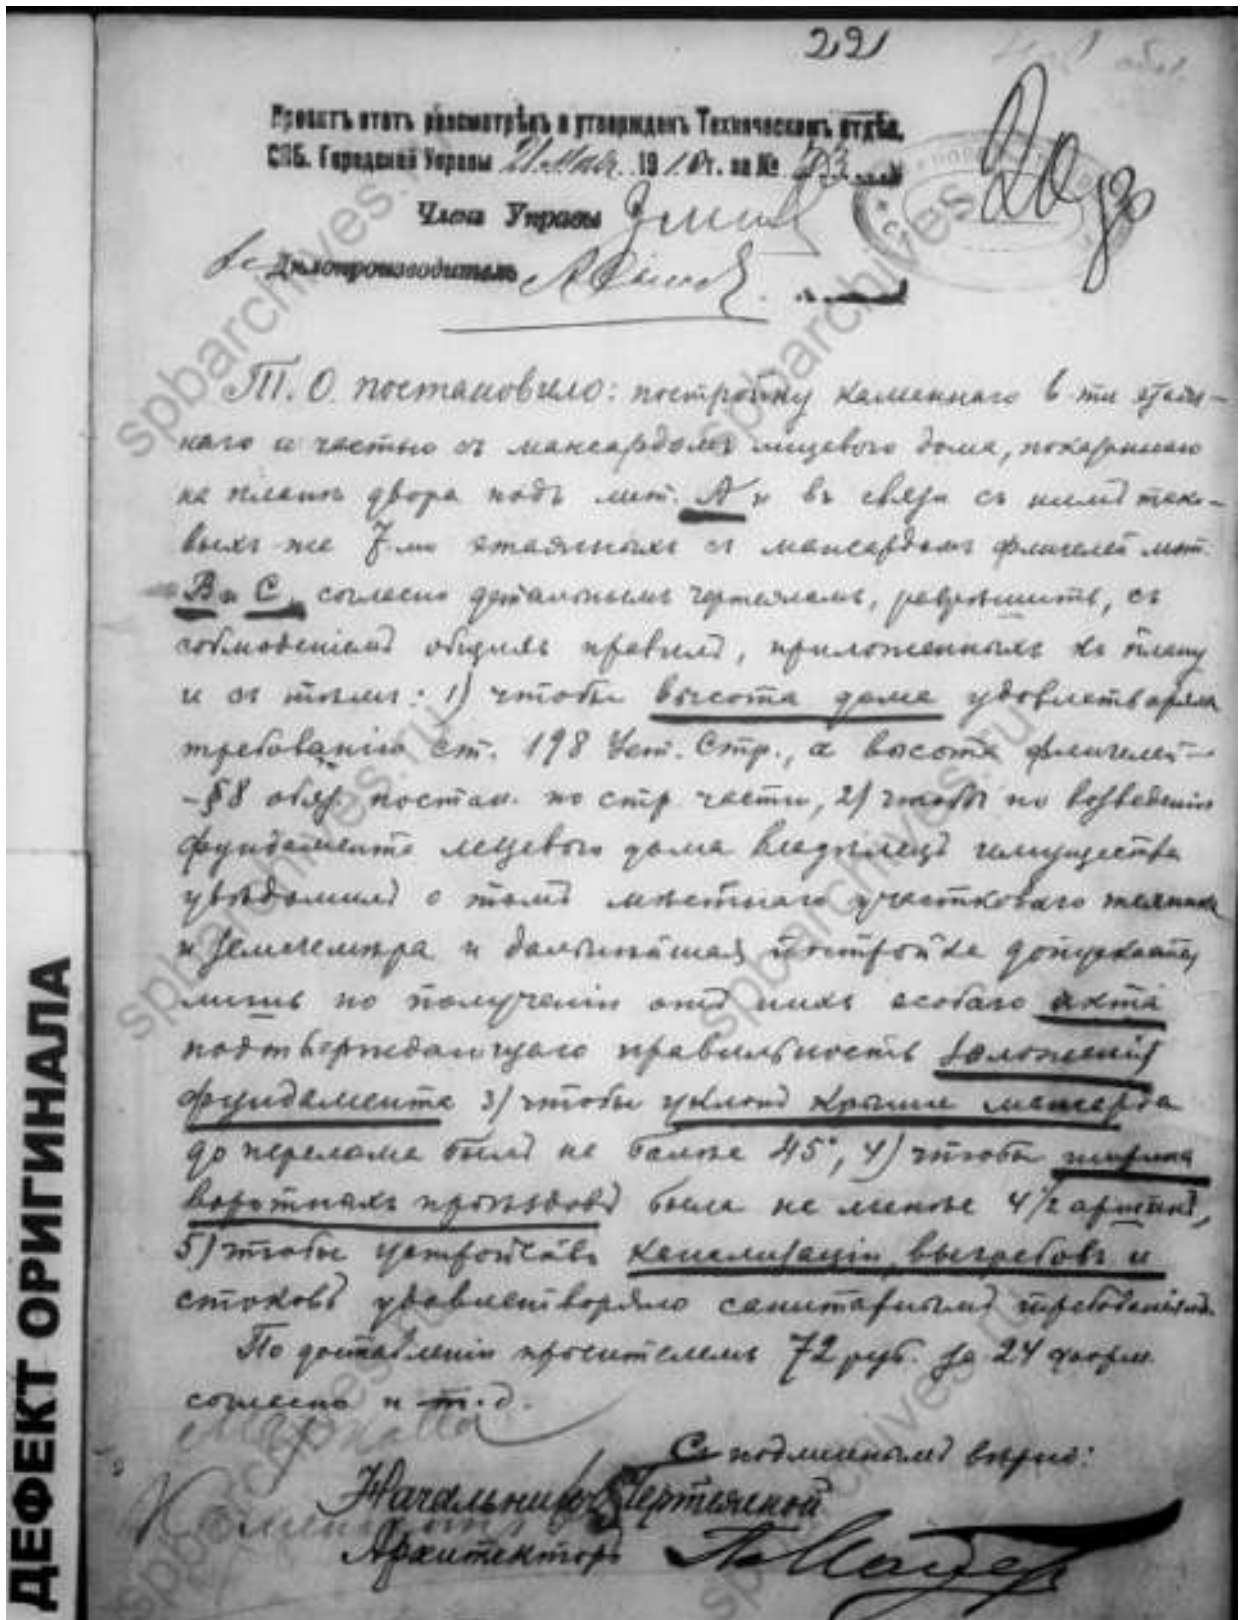 22
Проектъ этотъ разсмотрѣнъ и утвержденъ Техническимъ отдѣл.
СПБ. Городской Управы 21 Мая 1910 г. за №
Членъ Управы
Дѣлопроизводитель
Т. О. постановило: постройку каменнаго 6-ти этаж-
наго и частью съ мансардомъ лицевого дома, показаннаго
на планѣ двора подъ лит. А и въ связи съ нимъ тако-
выхъ же 7-ми этажныхъ съ мансардомъ флигелей лит.
В и С, согласно детальнымъ чертежамъ, разрѣшить, съ
соблюденіемъ общихъ правилъ, приложенныхъ къ плану
и съ тѣмъ: 1) чтобы высота дома удовлетворяла
требованію ст. 198 Уст. Стр., а высота флигелей—
- §8 обяз. постан. по стр. части, 2) чтобы по возведеніи
фундамента лицевого дома владѣлецъ имущества
увѣдомилъ о томъ мѣстнаго участковаго техника
и Землемѣра и дальнѣйшая постройка допускается
лишь по полученіи отъ нихъ особаго акта
подтверждающаго правильность заложенія
фундамента 3) чтобы уклонъ крыши мансарда
до перелома былъ не болѣе 45°, 4) чтобы ширина
воротныхъ проѣздовъ была не менѣе 4 1/2 аршинъ,
5) чтобы устройство канализаціи, выгребовъ и
стоковъ удовлетворяло санитарнымъ требованіямъ.
По доставленіи просителемъ 72 руб. за 24 форм.
согласно и т. д.
Съ подлиннымъ вѣрно:
Начальникъ Чертежной
Архитекторъ
ДЕФЕКТ ОРИГИНАЛА
spbarchives.ru
spbarchives.ru
spbarchives.ru
spbarchives.ru
spbarchives.ru
spbarchives.ru